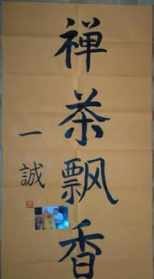 禅茶飘香
一誠